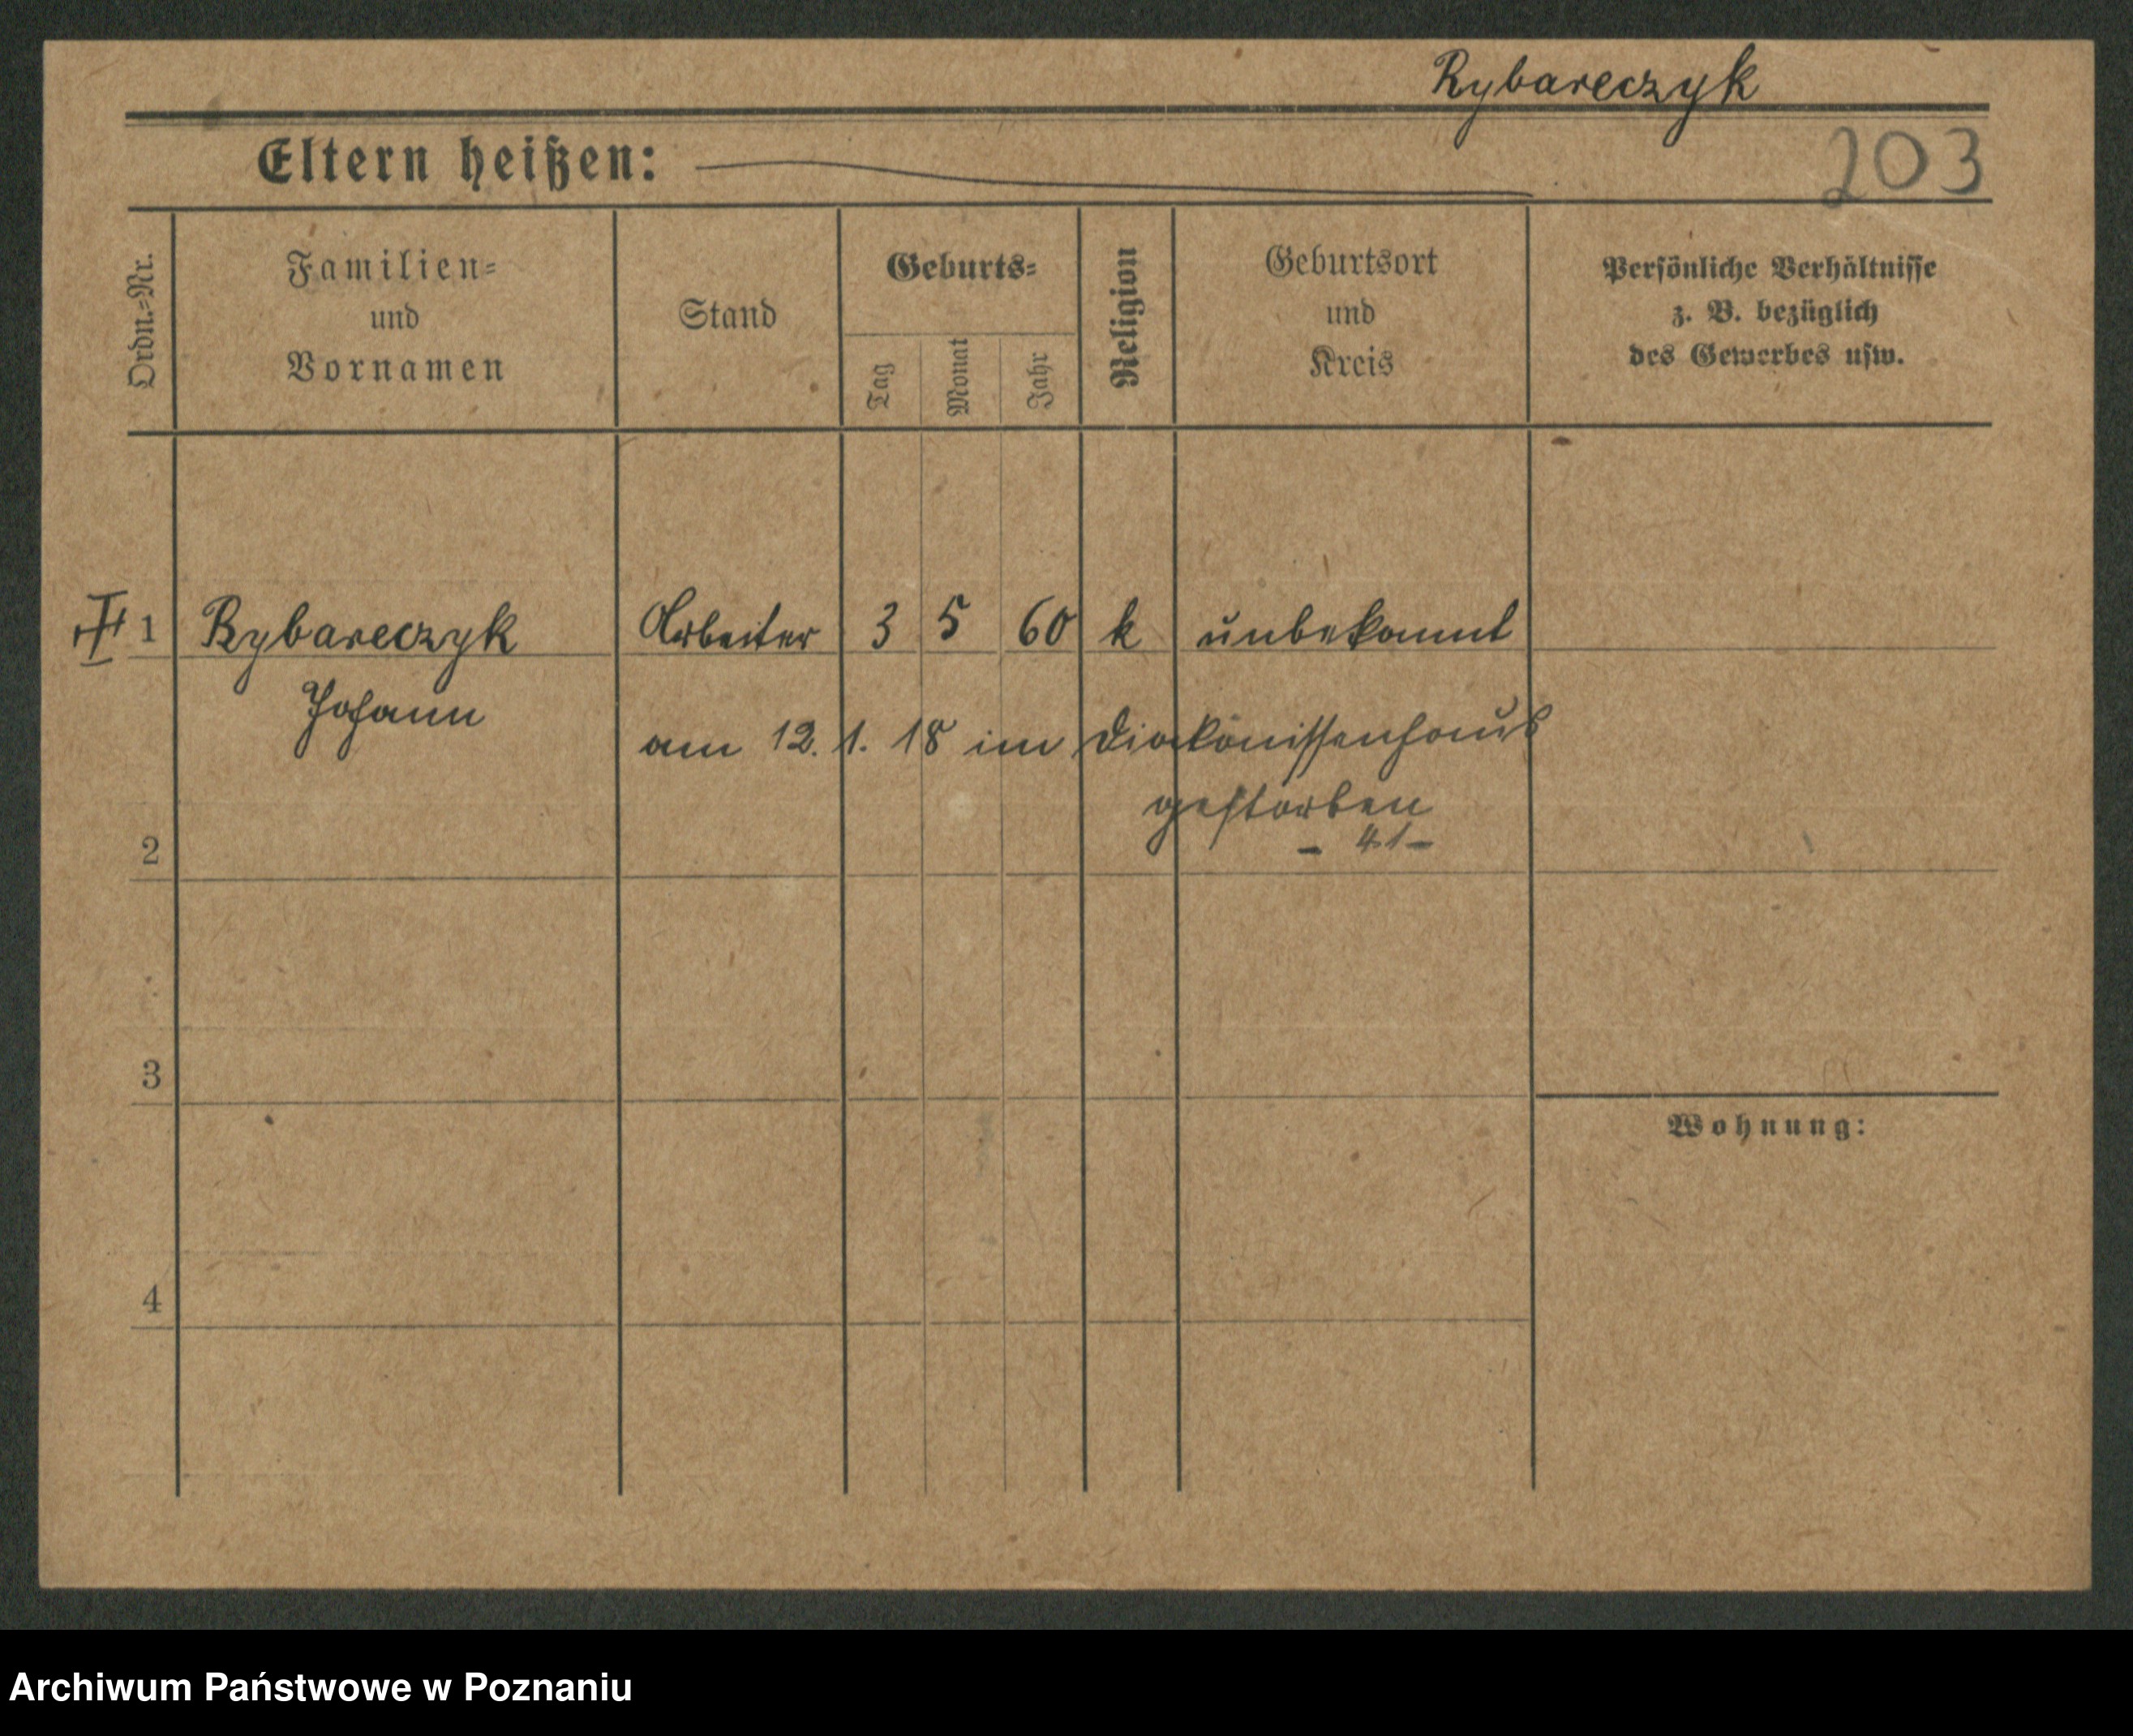 Rybareczyk
Eltern heißen:
203
Ordn.-Nr.
Familien-
und
Vornamen
Stand
Geburts-
Tag
Monat
Jahr
Religion
Geburtsort
und
Kreis
Persönliche Verhältnisse
z. B. bezüglich
des Gewerbes usw.
1 Rybareczyk Arbeiter 3 5 60 k unbekannt
Johann
am 12. 1. 18 im Diakonissenhaus
gestorben
- 41-
2
3
Wohnung:
4
Archiwum Państwowe w Poznaniu